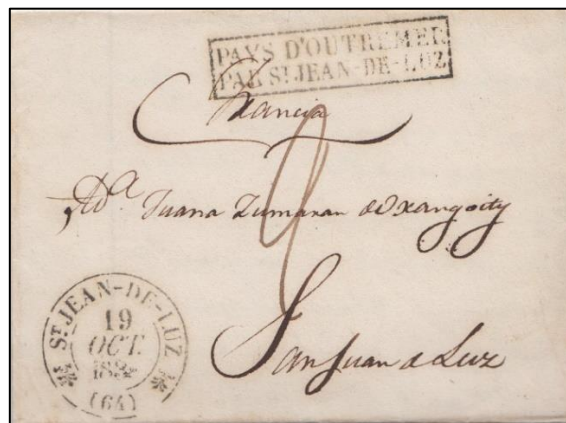 PAYS D'OUTREMER
PAR ST JEAN-DE-LUZ
Francia
Juana Zumaran de
9
San Juan de Luz
ST JEAN-DE-LUZ
19
OCT.
(64)